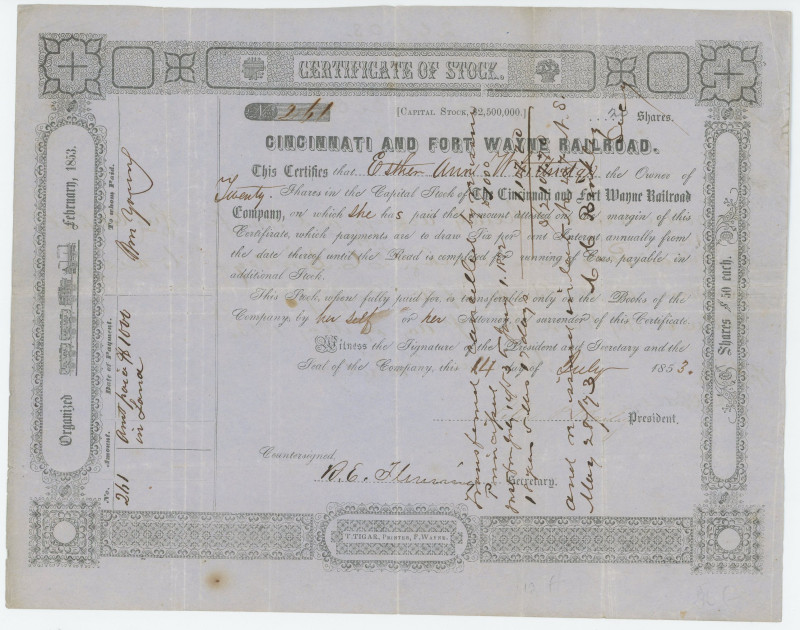 CERTIFICATE OF STOCK.
No. 261 [CAPITAL STOCK, $2,500,000.] 20 Shares.
CINCINNATI AND FORT WAYNE RAILROAD.
This Certifies that Esther Ann the Owner of
Twenty Shares in the Capital Stock of The Cincinnati and Fort Wayne Railroad
Company, on which she has paid the amount attested on margin of this
Certificate, which payments are to draw Six per cent Interest annually from
the date thereof until the Road is completed running of Cars, payable in
additional Stock.
This Stock, when fully paid for, is transferable only on the Books of the
Company, by her self or her Attorney on surrender of this Certificate.
Witness the Signature of the President and Secretary and the
Seal of the Company, this 14 day of July 1853.
President.
Countersigned,
Secretary.
T. TIGAR, PRINTER, F. WAYNE.
Organized February, 1853.
No. Amount. Date of Payment To whom Paid.
261 Amt paid $1000 Wm Young
in Land
Shares $50 each.
Transferred Cancelled by
Principal 1000
Int from July 14, 1853 to June 1, 1872
18 yrs 10 mos 17 days
and reissued in
May 28, 73
Secy